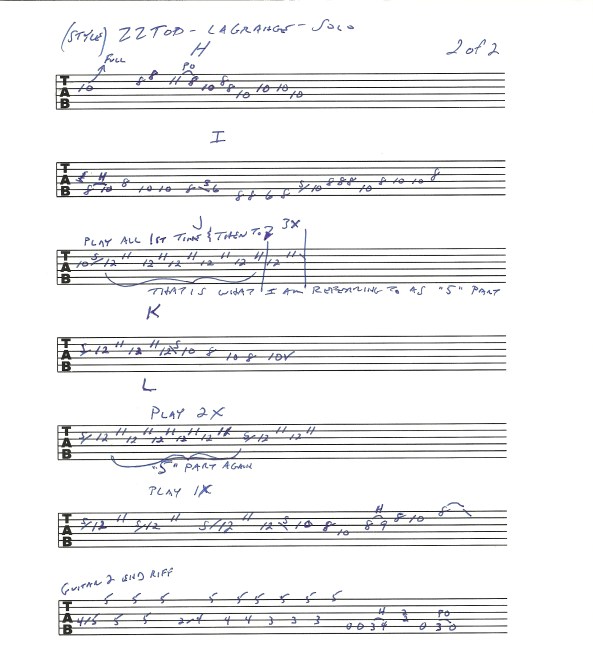 (STYLE) ZZ TOP - LAGRANGE - SOLO
H
2 of 2
FULL
PO
T
A
B
10 8 8 11 8 10 8 8 10 10 10 10
I
H S
T
A
B
8 10 8 10 10 8 6 8 8 6 8 5/10 8 8 8 10 8 10 10 8
J
PLAY ALL 1ST TIME & THEN TO 3X
T
A
B
10 S/12 11 12 11 12 11 12 11 12 11 12 11
THAT IS WHAT I AM REPEATING TO AS "5" PART
K
T
A
B
S/12 11 12 11 12 S 10 8 10 8 10V
L
PLAY 2X
T
A
B
S/12 11 12 11 12 11 12 11 12 11 12 11 S/12 11 12 11
"5" PART AGAIN
PLAY 1X
T
A
B
S/12 11 S/12 11 S/12 11 12 S 10 8 10 8 H 9 8 10 8
GUITAR 2 END RIFF
5 5 5 5 5 5 5 5
T
A
B
4/5 5 5 2-4 4 4 3 3 3 0 0 3 H 4 0 3 PO 0